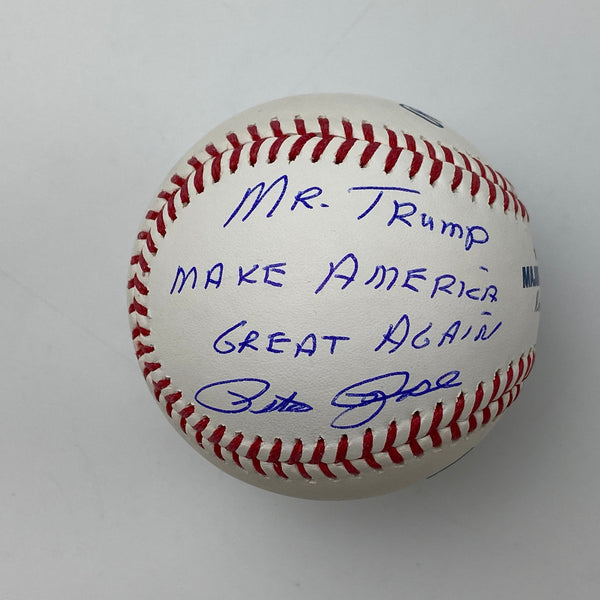 MR. TRUMP
MAKE AMERICA
GREAT AGAIN
Pete Rose
MAJ